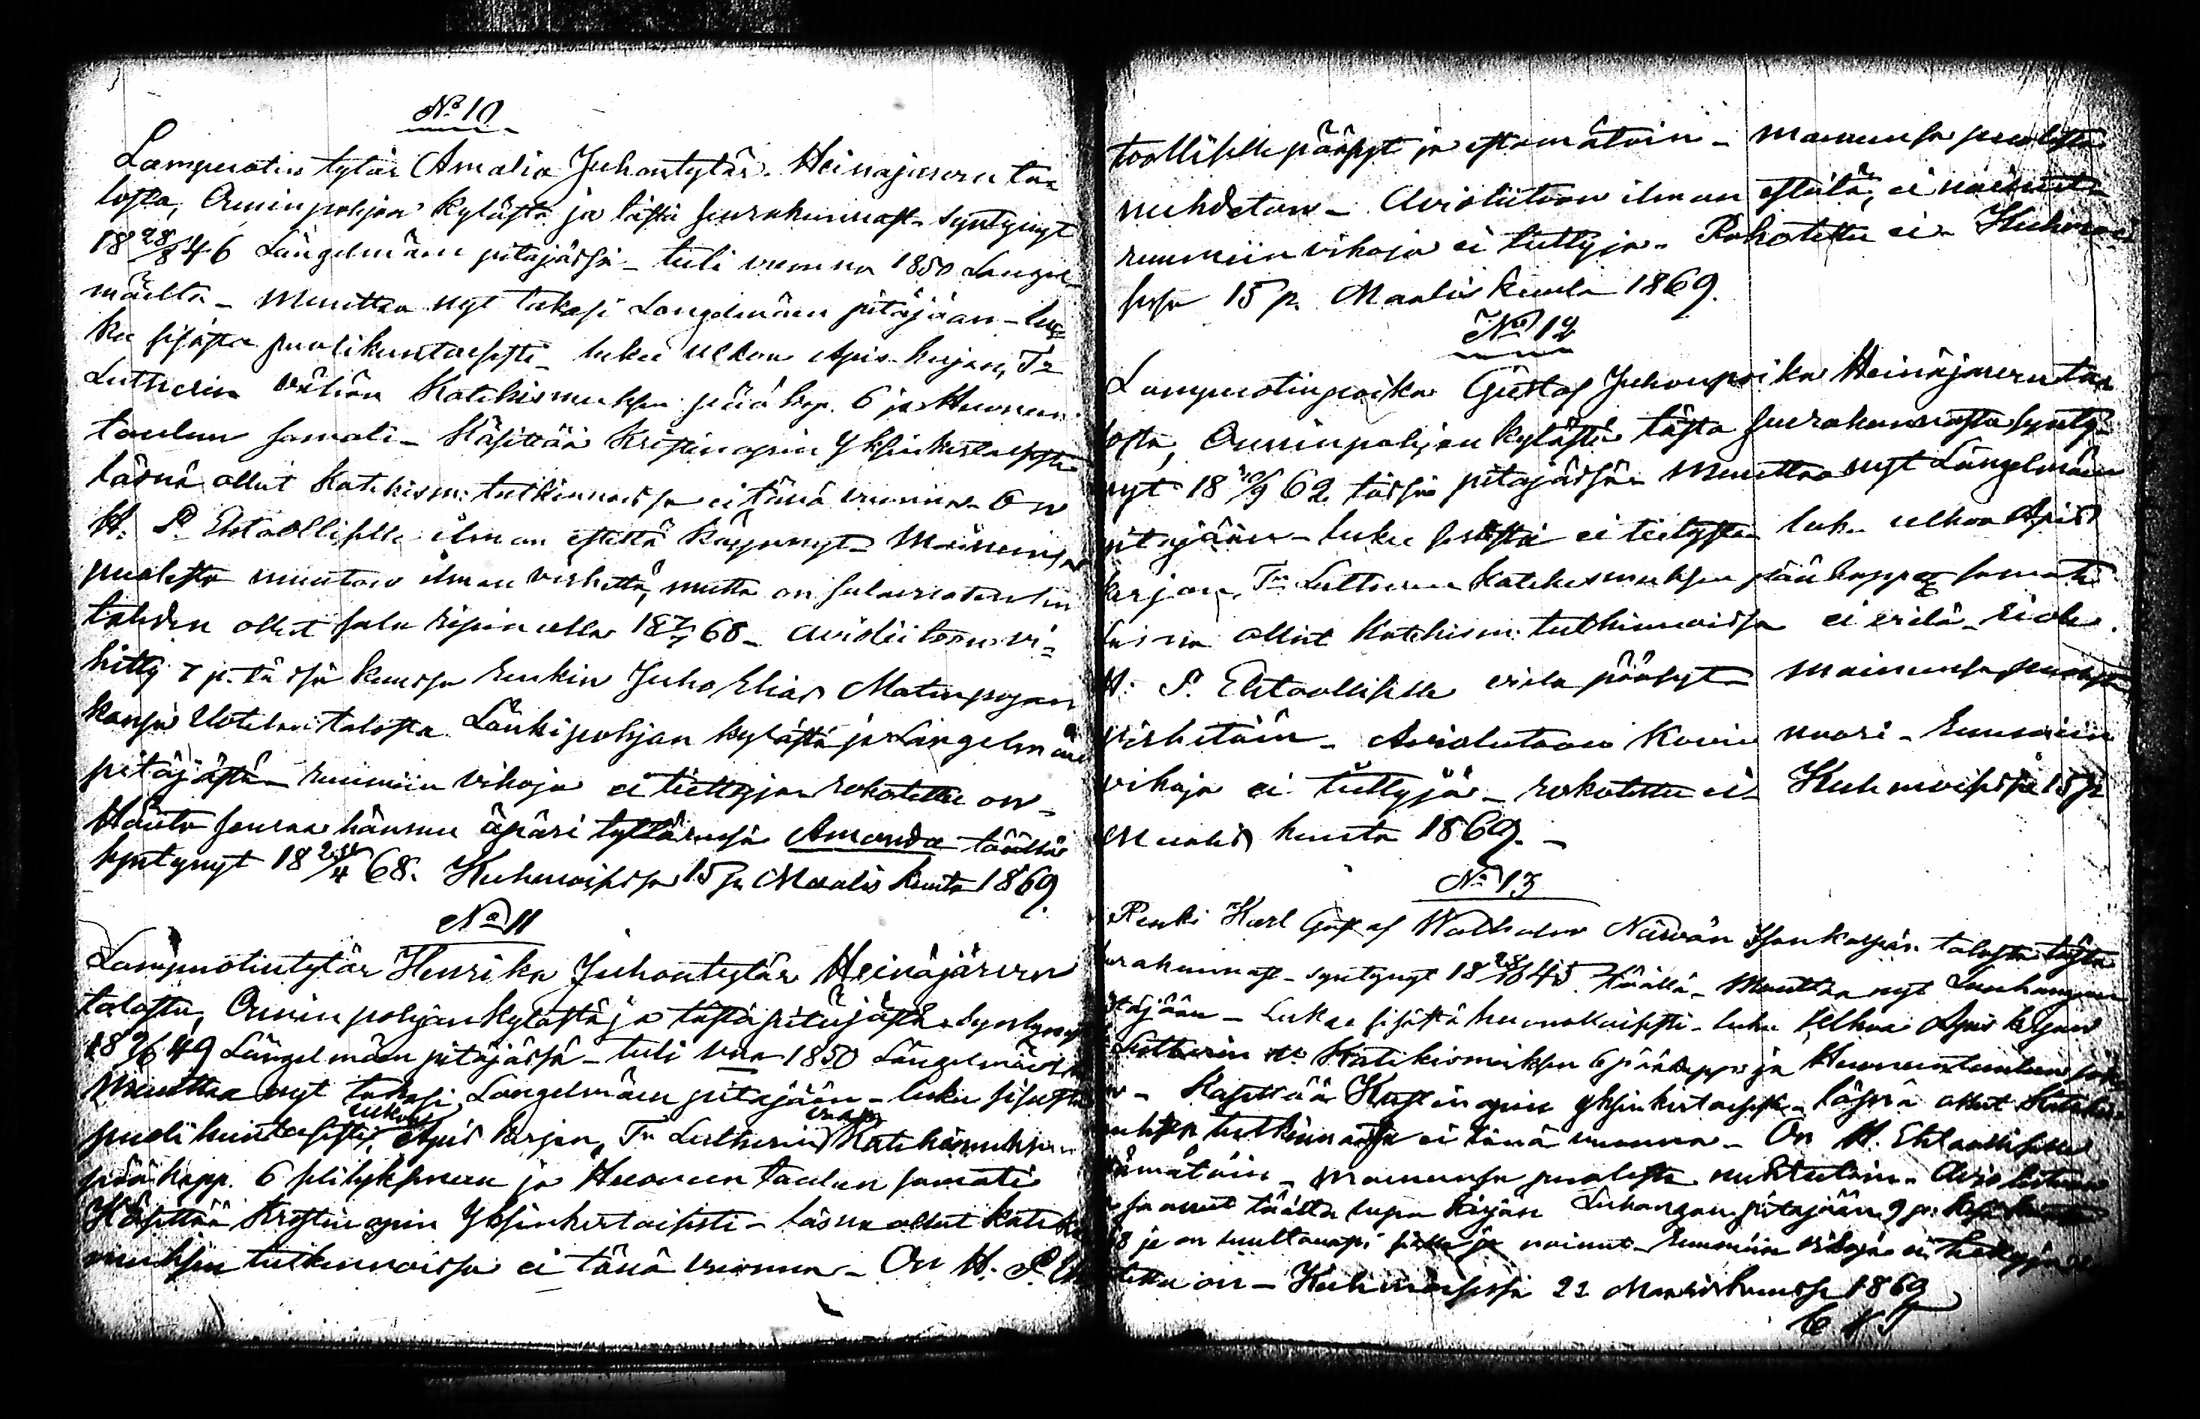 No 10
Lampuotin tytär Amalia Juhontytär Heinäjärven ta=
losta, Arvinpohjan kylästä ja tästä seurakunnast. syntynyt
18 28/8 46 Längelmäen pitäjässä – tuli vuonna 1850 Längel=
mäeltä – Muuttaa nyt takasi Längelmäen pitäjään – lu=
kee sisästä puolikuntaisesti – lukee ulkoa Apis kirjan, Tr
Lutherin vähän Katekismuksen pää kap. 6 ja Huoneen
taulun samati – Käsittää Kristin opin Yksinkertaisesti
läsnä ollut Katekism: tutkinnoissa ei tänä vuonna – On
H. P. Ehtoolliselle ilman estettä käynnyt – Maineensa
puolesta muutoin ilman virhettä, mutta on salavuoteuden
tähden ollut sala ripin alla 18 7/7 68 – avioliitoon vi=
hitty 7 p. tässä kuussa Renkin Juho Elias Matinpojan
kansa Uotilan talosta Länkipohjan kylästä ja Längelmäen
pitäjästä – ruumiin vikoja ei tiettyjä – rokotettu on –
Häntä seuraa hänen äpäri tyttärensä Amanda täällä
syntynyt 18 24/4 68. Kuhmoisissa 15 p. Maalis kuuta 1869.
No 11
Lampuotintytär Henrika Juhontytär Heinäjärven
talosta, Arvin pohjan kylästä ja tästä pitäjästä. Syntynyt
18 9/6 49 Längelmäen pitäjässä – tuli vna 1850 Längelmäeltä
Muuttaa nyt takasi Längelmäen pitäjään – lukee sisästä
puoli kuntaisesti, ulkoa Apis kirjan, Tr Lutherin Katekismuksen
pääkapp. 6 selityksineen ja Huoneen taulun samati
Käsittää Kristin opin Yksinkertaisesti – läsnä ollut kateki
muksen tutkinnoissa ei tänä vuonna – On H. P. Eh
toolliselle päässyt ja estämätöin – maineensa puolesta
nuhdetoin – Avioliitoon ilman estettä, ei nainut
ruumiin vikoja ei tiettyjä – Rokotettu ei – Kuhmoi
sissa 15 p. Maalis kuuta 1869.
No 12
Lampuotinpoika Gustaf Juhonpoika Heinäjärven ta
losta, Arvinpohjan kylästä tästä seurakunnasta synty=
nyt 18 10/9 62 tässä pitäjässä – Muuttaa nyt Längelmäen
pitäjään – lukee sisästä ei tietysti luke ulkoa Apis
kirjan, Tr Lutherin Katekismuksen pääkapp. samati
läsnä ollut Katekism: tutkinnoissa ei vielä – ei ole
H. P. Ehtoolliselle vielä päässyt – maineensa puolesta
virhetöin – Avioliitoon kovin nuori – Ruumiin
vikoja ei tiettyjä – rokotettu ei – Kuhmoisissa 15 p
Maalis kuuta 1869. –
No 13
Renki Karl Gustaf Walhelm Närvän talosta tästä
urakunnast – syntynyt 18 28/10 45 täällä – Muuttaa nyt Luhangan
itäjään – Lukee sisästä huonokaisesti – luke Ulkoa Apis kirjan
Lutherin Katekismuksen 6 pääkapp. ja Huoneentaulun
– Käsittää Kristin opin yksinkertaisesti – läsnä ollut Kateki
muksen tutkinnoissa ei tänä vuonna – On H. Ehtoolliselle
tämätöin – maineensa puolesta nuhteetoin – Avio liitoon
saanut täältä lupa kirjan Luhangan pitäjään 9 p:
ja on nainut – Ruumiin vikoja ei tiettyjä
tettu on – Kuhmoisissa 22 Maaliskuussa 1869